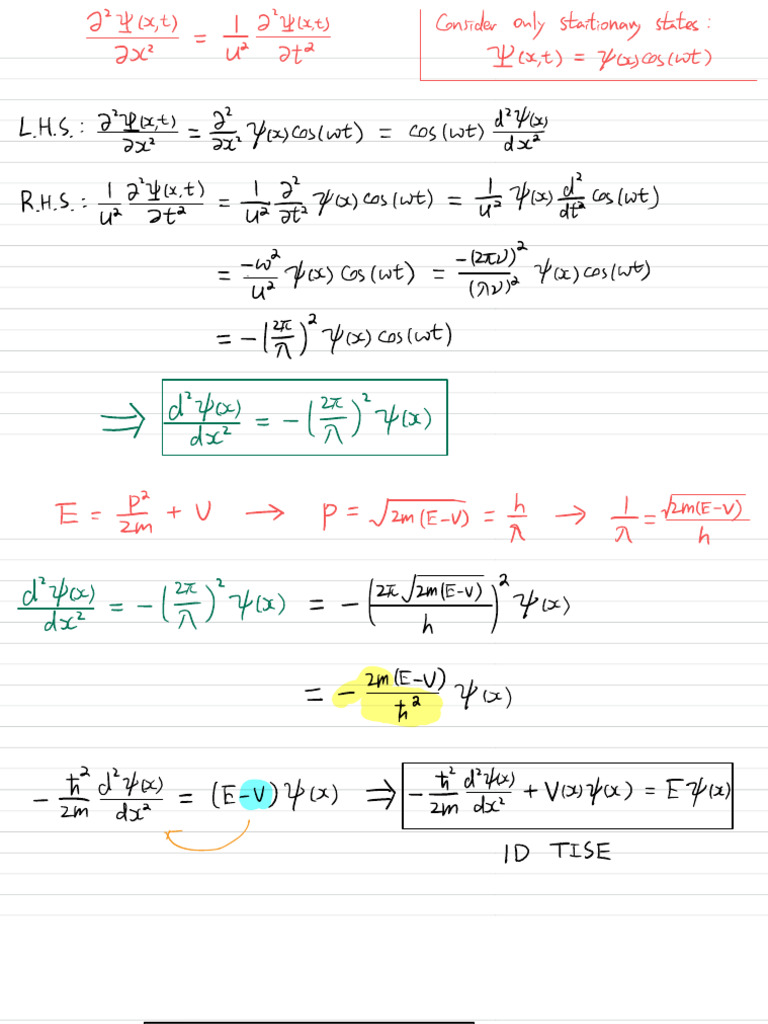 ∂²Ψ(x,t)/∂x² = 1/u² ∂²Ψ(x,t)/∂t²
Consider only startionary states:
Ψ(x,t) = ψ(x)cos(ωt)
L.H.S.: ∂²Ψ(x,t)/∂x² = ∂²/∂x² ψ(x)cos(ωt) = cos(ωt) d²ψ(x)/dx²
R.H.S.: 1/u² ∂²Ψ(x,t)/∂t² = 1/u² ∂²/∂t² ψ(x)cos(ωt) = 1/u² ψ(x) d²/dt² cos(ωt)
= -ω²/u² ψ(x)cos(ωt) = -(2πν)²/(λν)² ψ(x)cos(ωt)
= -(2π/λ)² ψ(x)cos(ωt)
⟹ d²ψ(x)/dx² = -(2π/λ)² ψ(x)
E = p²/2m + V → p = √2m(E-V) = h/λ → 1/λ = √2m(E-V)/h
d²ψ(x)/dx² = -(2π/λ)² ψ(x) = -(2π√2m(E-V)/h)² ψ(x)
= - 2m(E-V)/ħ² ψ(x)
- ħ²/2m d²ψ(x)/dx² = (E-V)ψ(x) ⟹ - ħ²/2m d²ψ(x)/dx² + V(x)ψ(x) = Eψ(x)
1D TISE